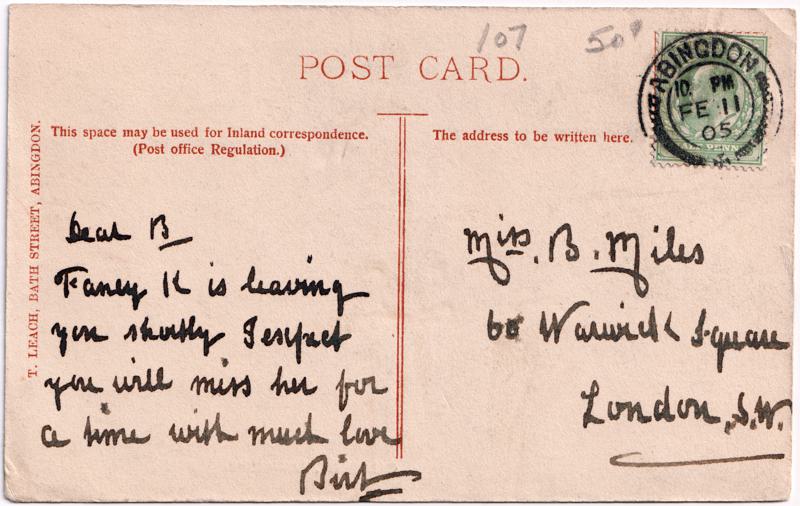 107 50
POST CARD.
ABINGDON
10. PM
FE 11
05
This space may be used for Inland correspondence.
(Post office Regulation.)
The address to be written here.
T. LEACH, BATH STREET, ABINGDON.
Dear B
Fancy K is leaving
you shortly I expect
you will miss her for
a time with much love
Birt
Miss. B. Miles
60 Warwick Square
London, S.W.